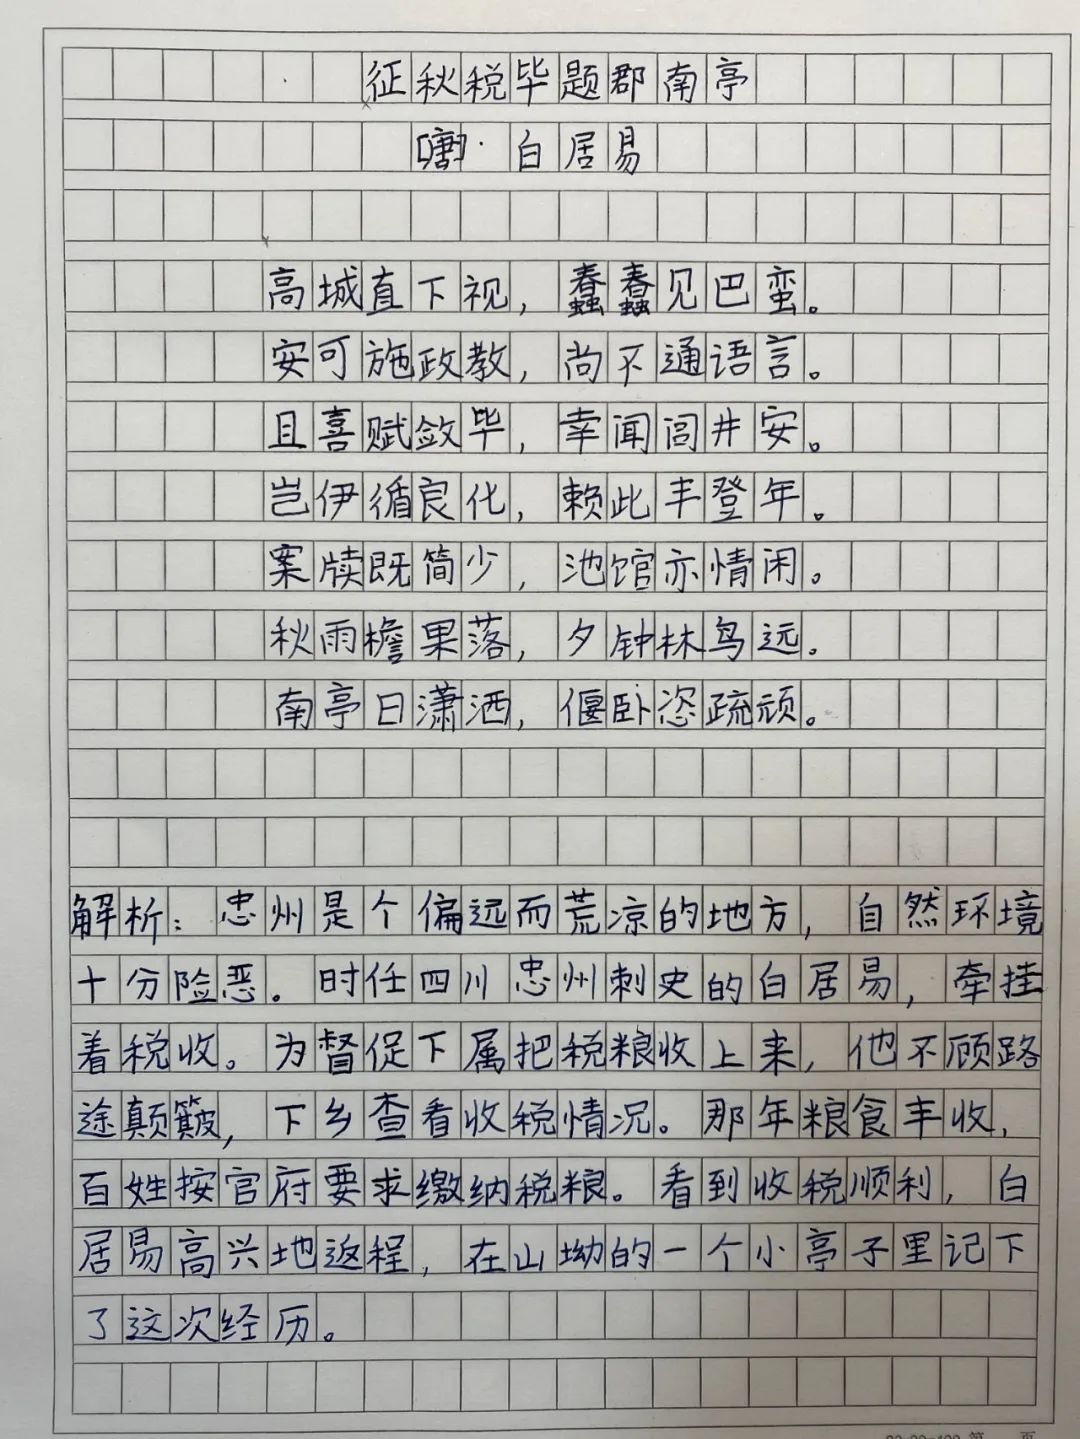 征秋税毕题郡南亭
[唐]·白居易
高城直下视，蠢蠢见巴蛮。
安可施政教，尚不通语言。
且喜赋敛毕，幸闻闾井安。
岂伊循良化，赖此丰登年。
案牍既简少，池馆亦情闲。
秋雨檐果落，夕钟林鸟远。
南亭日潇洒，偃卧恣疏顽。
解析：忠州是个偏远而荒凉的地方，自然环境
十分险恶。时任四川忠州刺史的白居易，牵挂
着税收。为督促下属把税粮收上来，他不顾路
途颠簸，下乡查看收税情况。那年粮食丰收，
百姓按官府要求缴纳税粮。看到收税顺利，白
居易高兴地返程，在山坳的一个小亭子里记下
了这次经历。